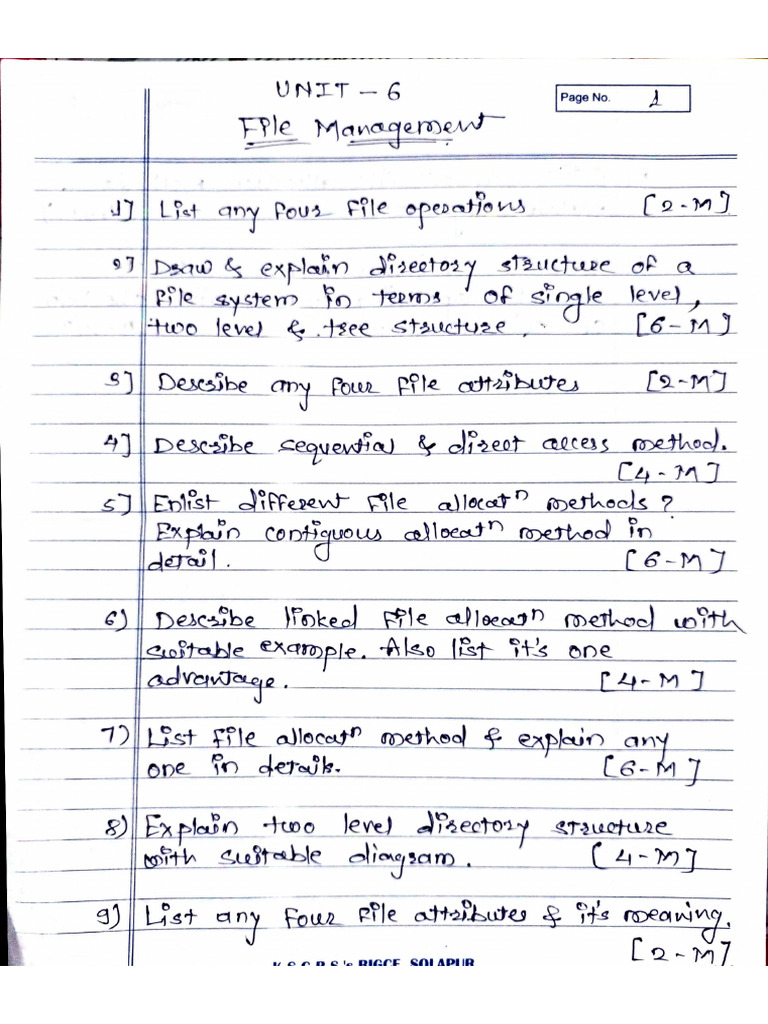 UNIT - 6
Page No. 1
File Management
1] List any four file operations [2-M]
2] Draw & explain directory structure of a
file system in terms of single level,
two level & tree structure. [6-M]
3] Describe any four file attributes [2-M]
4] Describe sequential & direct access method.
[4-M]
5] Enlist different file allocatⁿ methods?
Explain contiguous allocatⁿ method in
detail. [6-M]
6) Describe linked file allocatⁿ method with
suitable example. Also list it's one
advantage. [4-M]
7) List file allocatⁿ method & explain any
one in details. [6-M]
8) Explain two level directory structure
with suitable diagram. [4-M]
9) List any four file attributes & it's meaning.
[2-M]
K.S.G.B.S.'s BIGCE, SOLAPUR